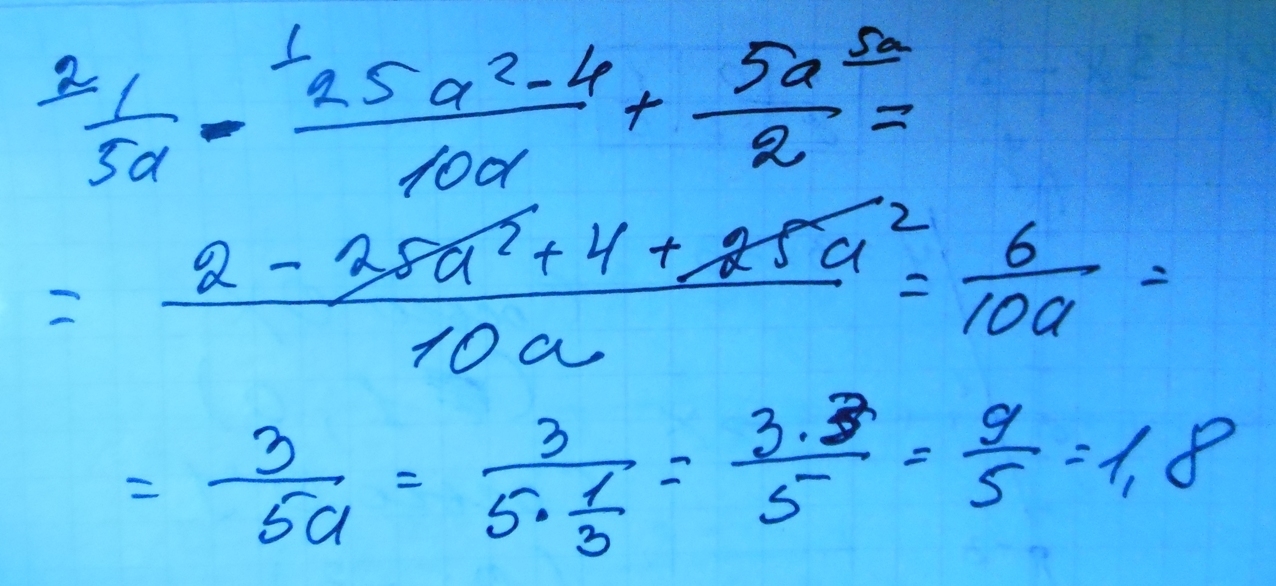 ²⁄ 1/5a - ¹⁄ (25a² - 4)/10a + 5a/2 ⁵ᵃ =
= (2 - 25a² + 4 + 25a²)/10a = 6/10a =
= 3/5a = 3/(5·1/3) = 3·3/5 = 9/5 = 1,8